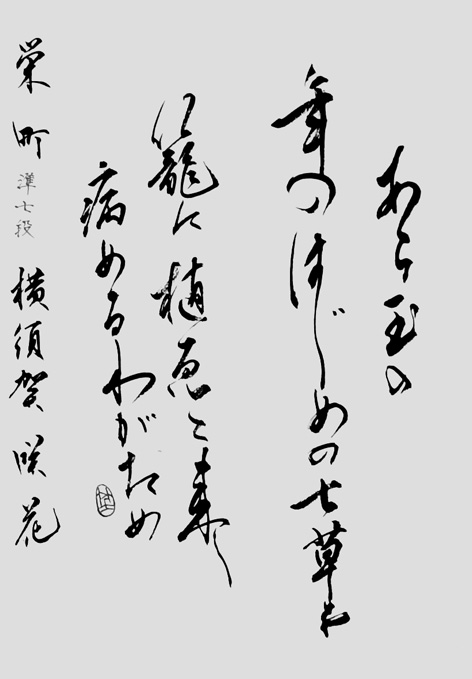 あら玉の
年のはじめの七草を
籠に植ゑて来し
病めるわがため
栄町 準七段 横須賀咲花